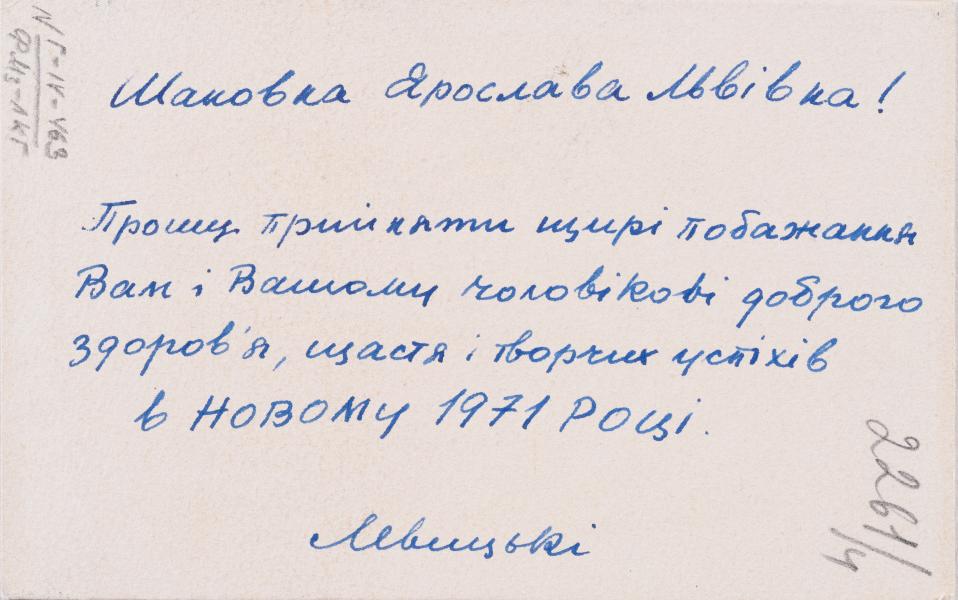 Шановна Ярослава Львівна!
Прошу прийняти щирі побажання
Вам і Вашому чоловікові доброго
здоров'я, щастя і творчих успіхів
в НОВОМУ 1971 РОЦІ.
Левицькі
2261/4